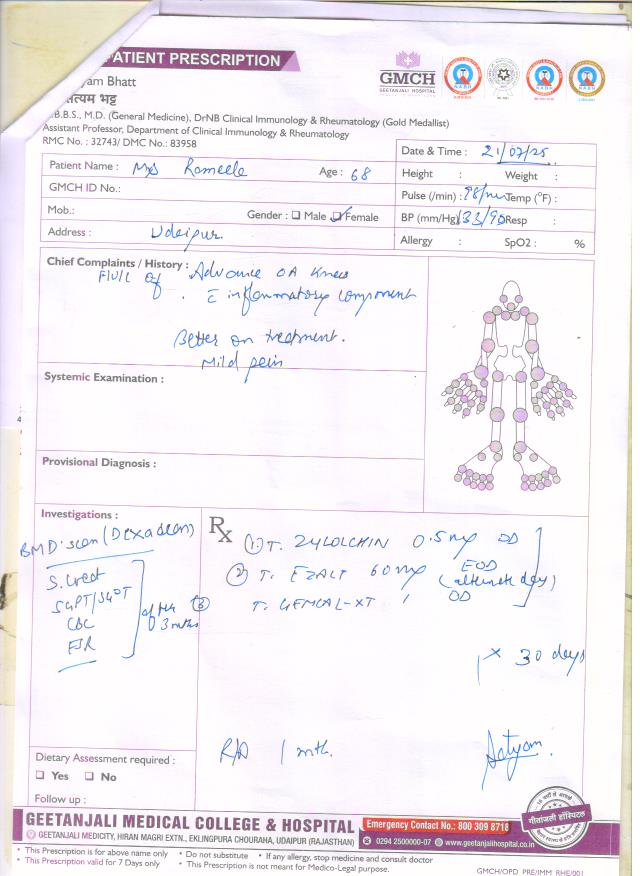 PATIENT PRESCRIPTION
yam Bhatt
सत्यम भट्ट
.B.B.S., M.D. (General Medicine), DrNB Clinical Immunology & Rheumatology (Gold Medallist)
Assistant Professor, Department of Clinical Immunology & Rheumatology
RMC No. : 32743/ DMC No.: 83958
GMCH
GEETANJALI HOSPITAL
NABH
NABH
NABH
Date & Time : 21/07/25
Patient Name : Mrs Rameele Age : 68
Height : Weight :
GMCH ID No.:
Pulse (/min) : 98/min Temp (°F) :
Mob.: Gender : Male Female
BP (mm/Hg) 133/90 Resp :
Address : Udaipur
Allergy : SpO2 : %
Chief Complaints / History :
F/U/C of Advance OA Knee
c inflammatory component
Better on treatment.
Mild pain
Systemic Examination :
Provisional Diagnosis :
Investigations :
BMD scan (Dexa scan)
S. Creat
SGPT/SGOT
CBC
ESR
after 3 mths
Rx
(1) T. ZYLOLCHIN 0.5 mg OD
(2) T. EZALT 60 mg EOD (alternate day)
(3) T. GEMCAL-XT 1 OD
x 30 days
R/A 1 mth.
Satyam
Dietary Assessment required :
Yes No
Follow up :
GEETANJALI MEDICAL COLLEGE & HOSPITAL
GEETANJALI MEDICITY, HIRAN MAGRI EXTN., EKLINGPURA CHOURAHA, UDAIPUR (RAJASTHAN)
Emergency Contact No.: 800 309 8718
0294 2500000-07 www.geetanjalihospital.co.in
गीतांजली हॉस्पिटल
• This Prescription is for above name only • Do not substitute • If any allergy, stop medicine and consult doctor
• This Prescription valid for 7 Days only • This Prescription is not meant for Medico-Legal purpose.
GMCH/OPD_PRE/IMM_RHE/001